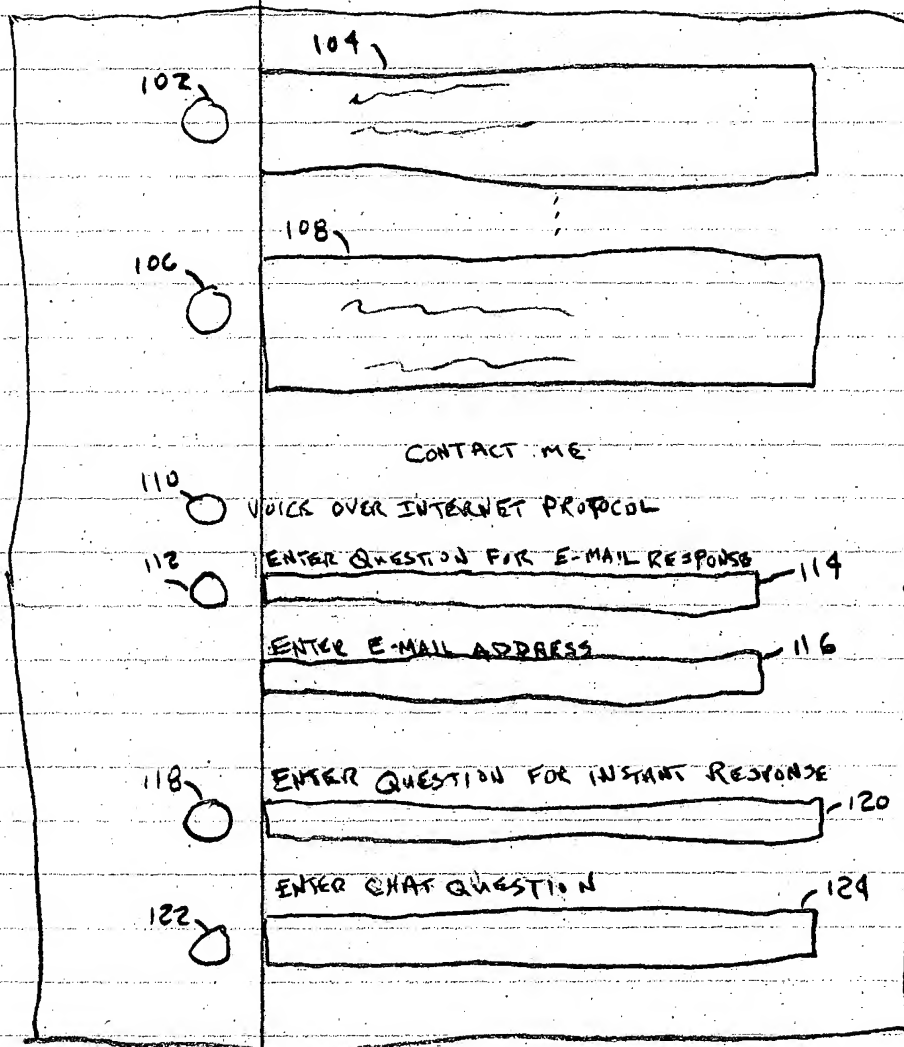 104
102
108
106
CONTACT ME
110
VOICE OVER INTERNET PROTOCOL
112 ENTER QUESTION FOR E-MAIL RESPONSE 114
ENTER E-MAIL ADDRESS 116
118 ENTER QUESTION FOR INSTANT RESPONSE
120
ENTER CHAT QUESTION 124
122